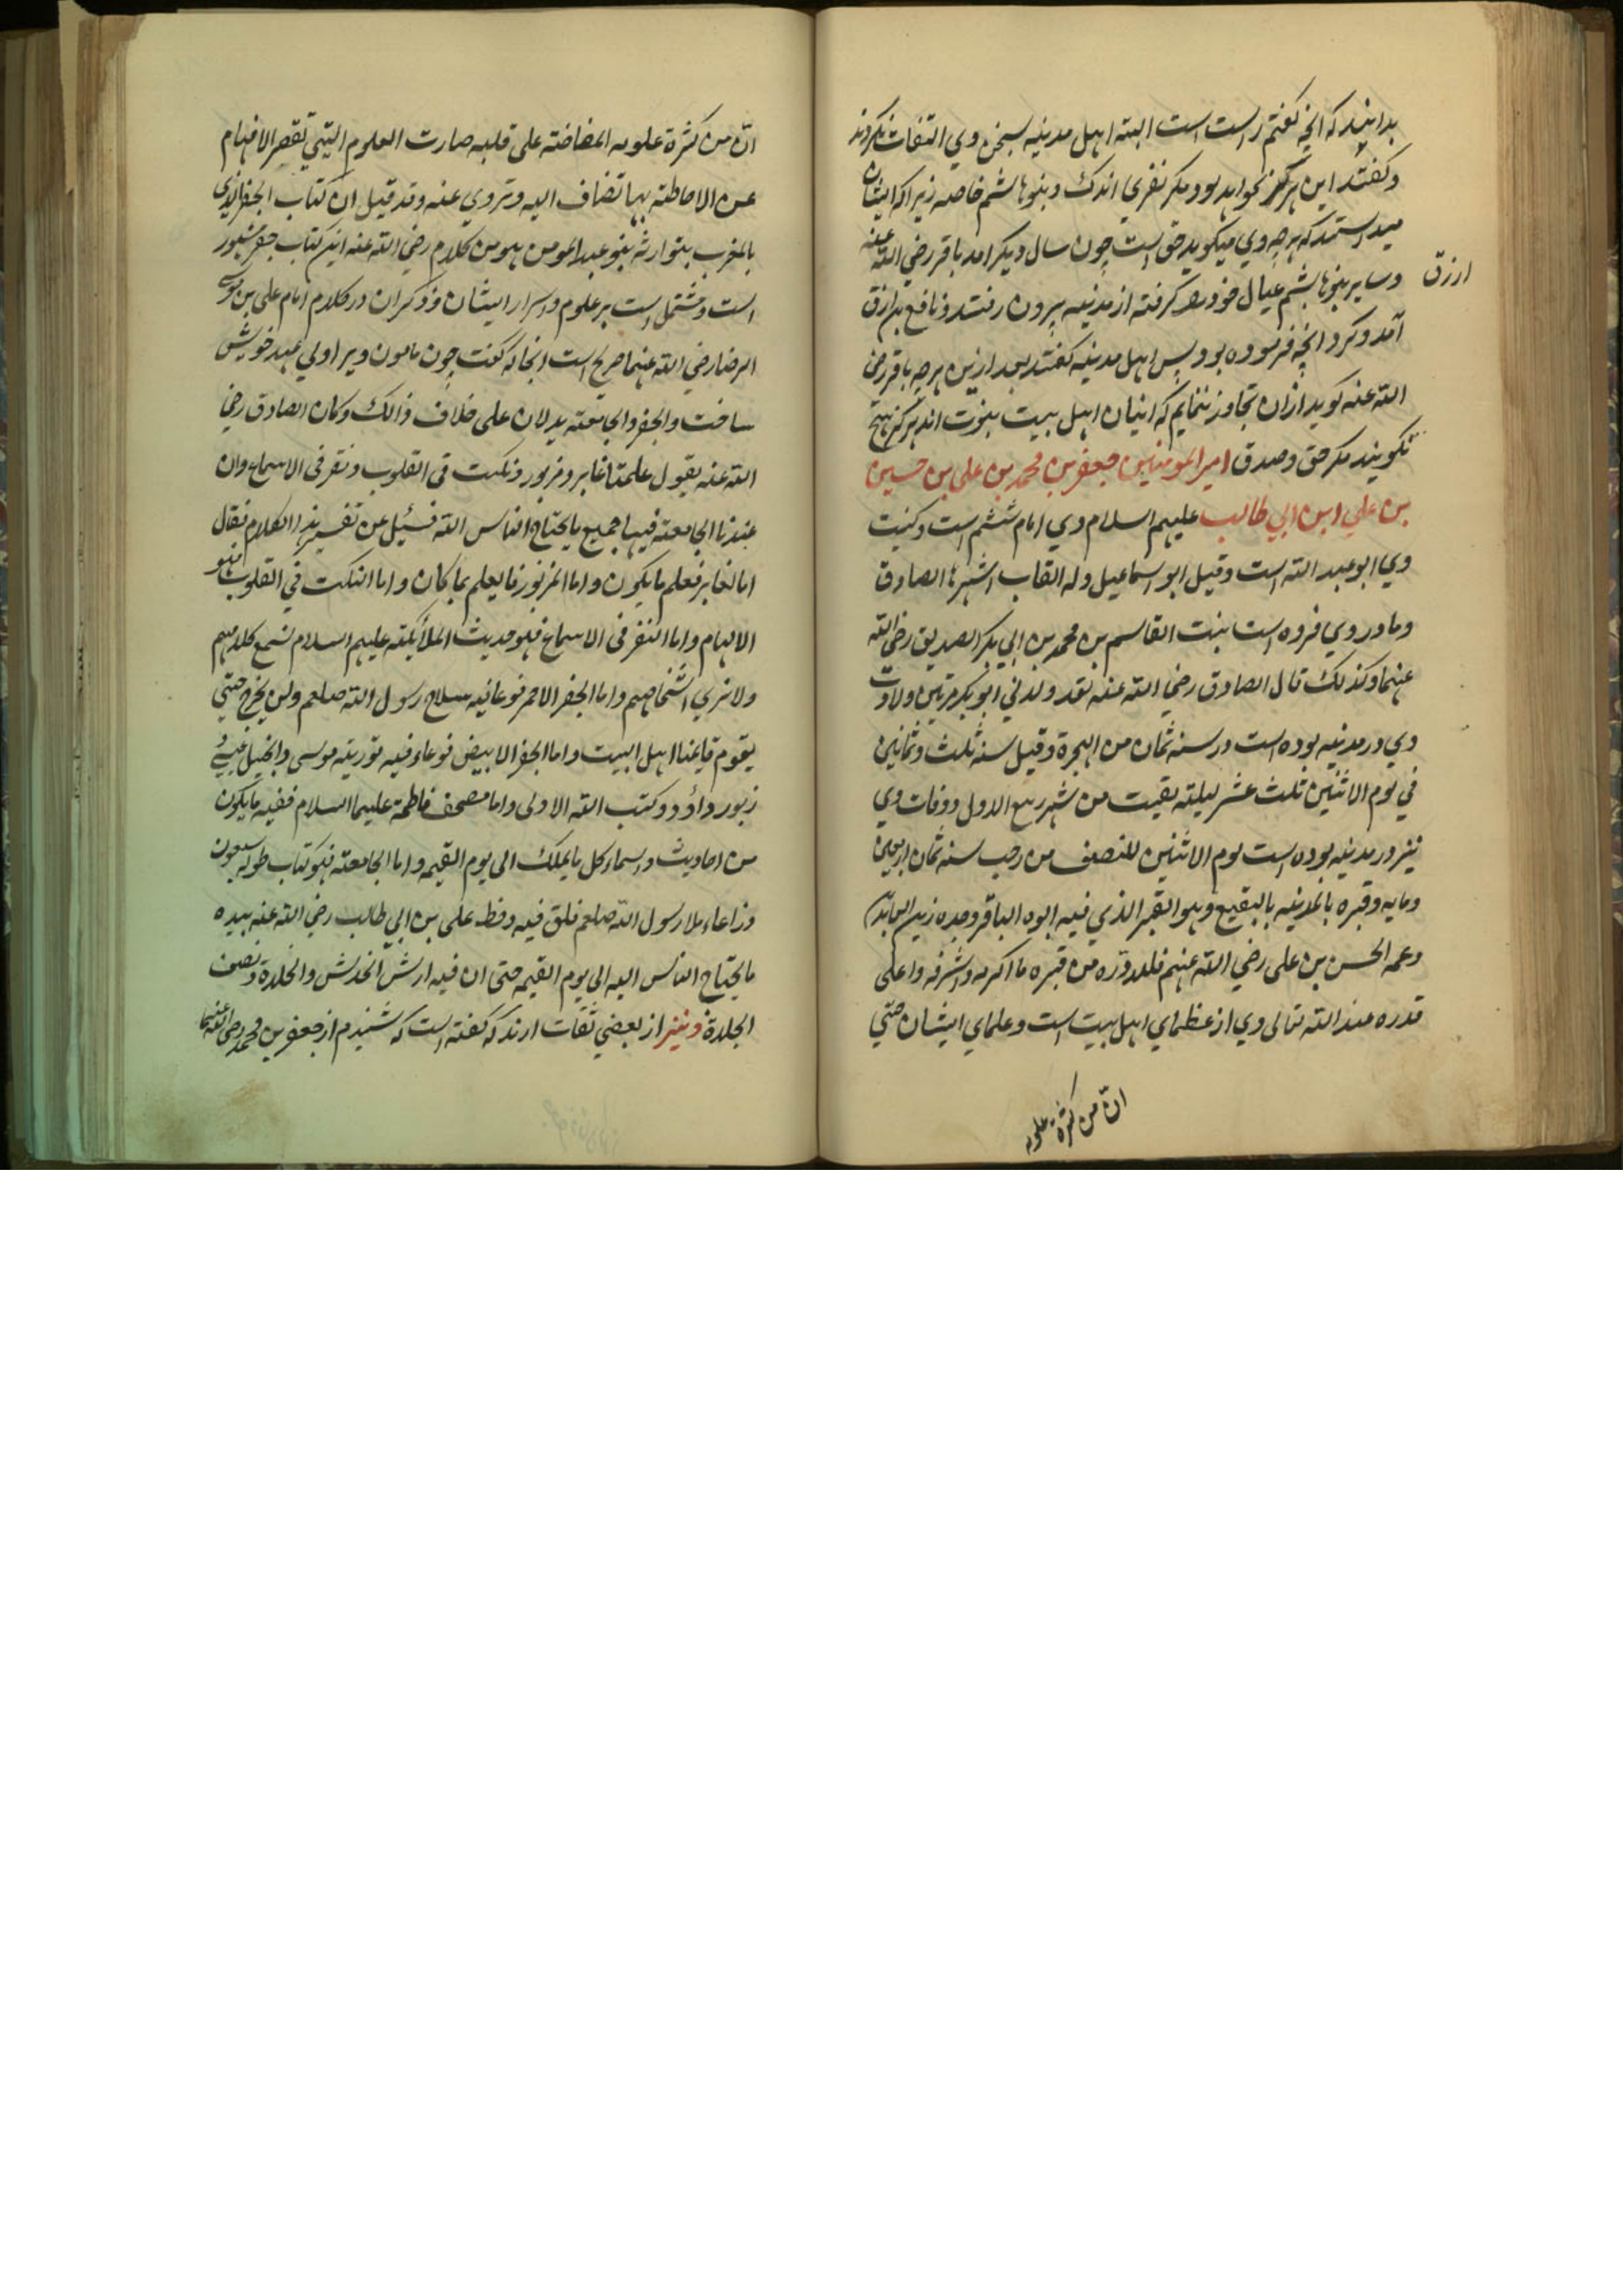 بدانید که انچه گفتم راست است البته اهل مدینه بسخن وی التفات نکردند
و گفتند این هرگز نخواهد بود مگر نفری اندک و بنو هاشم خاصه زیرا که ایشان
میدانستند که هرچه وی میگوید حق است چون سال دیگر امد باقر رضی الله عنه
و سایر بنو هاشم عیال خود را گرفته از مدینه بیرون رفتند و نافع بن ازرق
ازرق
آمد و کرد انچه فرموده بود پس اهل مدینه گفتند بعد ازین هرچه باقر رضی
الله عنه گوید ازان تجاوز ننمایم که اینان اهل بیت نبوت اند هرگز هیچ
نگویند مگر حق و صدق امیر المومنین جعفر بن محمد بن علی بن حسین
بن علی ابن ابی طالب علیهم السلام وی امام ششم است و کنیت
وی ابو عبد الله است و قیل ابو اسماعیل و له القاب اشهرها الصادق
و مادر وی فروه است بنت القاسم بن محمد بن ابی بکر الصدیق رضی الله
عنهما و کذلک قال الصادق رضی الله عنه لقد ولدنی ابو بکر مرتین ولادت
وی در مدینه بوده است در سنه ثمان من الهجرة و قیل سنه ثلث و ثمانین
فی یوم الاثنین ثلث عشر لیلته بقیت من شهر ربیع الاول و وفات وی
نیز در مدینه بوده است یوم الاثنین للنصف من رجب سنه ثمان اربعین
و مایه و قبره بالمدینه بالبقیع و هو القبر الذی فیه ابوه الباقر و جده زین العابدین
و عمه الحسن بن علی رضی الله عنهم فلله دره من قبره ما اکرمه و اشرفه و اعلی
قدره عند الله تعالی وی از عظمای اهل بیت است و علمای ایشان حتی
ان من کثرة علومه
ان من کثرة علومه المفاضته علی قلبه صارت العلوم التی تقصر الافهام
عن الاحاطته بها تضاف الیه و تروی عنه و قد قیل ان کتاب الجفر الذی
بالمغرب یتوارثه بنو عبد المومن هو من کلام رضی الله عنه این کتاب جفر مشهور
است و مشتمل است بر علوم و اسرار ایشان و ذکر ان در کلام امام علی بن موسی
الرضا رضی الله عنهما صریح است انجا که گفت چون مامون ویرا ولی عهد خویش
ساخت و الجفر و الجامعته یدلان علی خلاف ذالک و کان الصادق رضی
الله عنه یقول علمنا غابر و مزبور و نکت فی القلوب و نقر فی الاسماع و ان
عندنا الجامعته فیها جمیع ما یحتاج الناس الله فسئیل عن تفسیر هذا الکلام فقال
اما الغابر فعلم ما یکون و اما المزبور فما یعلم بما کان و اما النکت فی القلوب فهو
الالهام و اما النقر فی الاسماع فهو حدیث الملائکته علیهم السلام نسمع کلامهم
ولا نری اشخاصهم و اما الجفر الاحمر فوعا فیه سلاح رسول الله صلعم ولن یخرج حتی
یقوم قایمنا اهل البیت و اما الجفر الابیض فوعاء فیه توریته موسی و انجیل عیسی و
زبور داؤد و کتب الله الاولی و اما مصحف فاطمة علیها السلام ففیه ما یکون
من احادیث و اسماء کل ما یملک الی یوم القیمه و اما الجامعته فهو کتاب طوله سبعون
ذراعا املا رسول الله صلعم فلق فیه و خط علی بن ابی طالب رضی الله عنه بیده
ما یحتاج الناس الیه الی یوم القیمه حتی ان فیه ارش الخدش و الجلدة و نصف
الجلدة و نیز از بعضی ثقات ارند که گفته است که شنیدم از جعفر بن محمد رضی الله عنهما